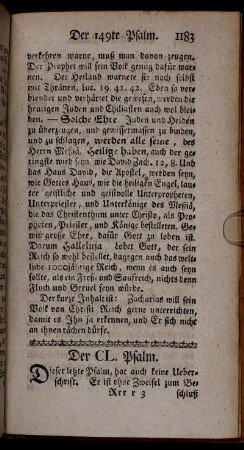 Der 149te Psalm. 1183
verkehren warne, muß man davon zeugen.
Der Prophet will sein Volk genug dafür war-
nen. Der Heiland warnete sie noch selbst
mit Thränen, Luc. 19, 41. 42. Eben so ver-
blendet und verhärtet die gewesen, werden die
heutigen Juden und Chiliasten auch wol blei-
ben. — Solche Ehre, Juden und Heiden
zu überzeugen, und gewissermassen zu binden,
und zu schlagen, werden alle seine, des
Herrn Messiä, Heilige haben, auch der ge-
ringste wird seyn, wie David Zach. 12, 8. Und
das Haus David, die Apostel, werden seyn,
wie Gottes Haus, wie die heiligen Engel, lau-
ter geistliche und geistvolle Unterpropheten,
Unterpriester, und Unterkönige des Messiä,
die das Christenthum unter Christo, als Pro-
pheten, Priester, und Könige bestelleten. Ge-
wiß grosse Ehre, dafür Gott zu loben ist.
Darum Halleluja Lobet Gott, der sein
Reich so wohl bestellet, dagegen auch das welt-
liche 1000jährige Reich, wenn es auch seyn
solte, als ein Freß- und Saufreich, nichts denn
Fluch und Greuel seyn würde.
Der kurze Inhalt ist: Zacharias will sein
Volk von Christi Reich gerne unterrichten,
damit es Ihn ja erkennen, und Er sich nicht
an ihnen rächen dürfe.
Der CL. Psalm.
Dieser letzte Psalm, hat auch keine Ueber-
schrift. Er ist ohne Zweifel zum Be-
Rrr r 3 schluß